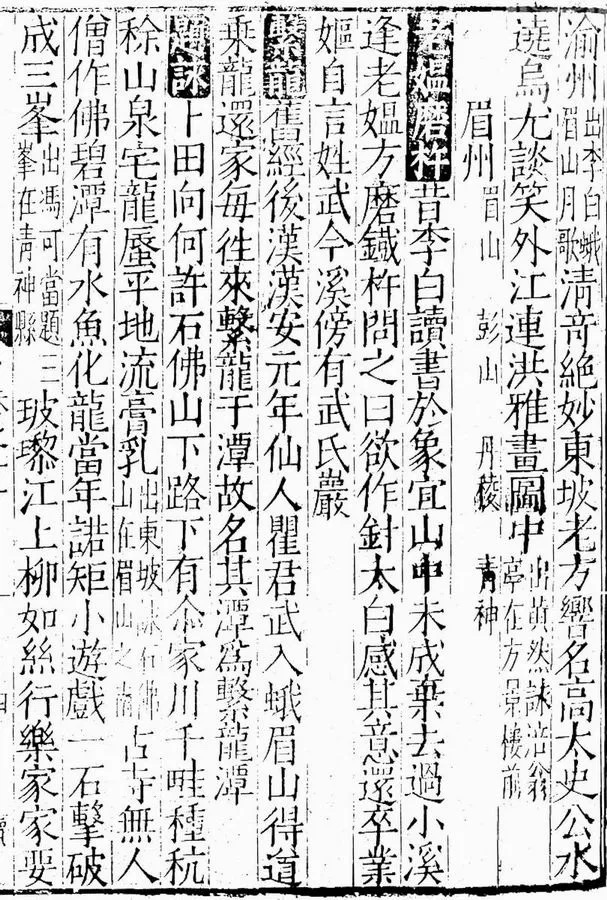 渝州出李白蛾眉山月歌清竒絶妙東坡老方響名高太史公水
遶烏尤談笑外江連洪雅畫圖中出黄然詠涪翁亭在方景樓前
眉州眉山 彭山 丹稜 青神
老媼磨杵昔李白讀書於象宜山中未成棄去過小溪
逢老媼方磨鐵杵問之曰欲作針太白感其意還卒業
嫗自言姓武今溪傍有武氏巖
繫龍舊經後漢漢安元年仙人瞿君武入蛾眉山得道
乘龍還家每徃來繫龍于潭故名其潭爲繫龍潭
題詠卜田向何許石佛山下路下有尒家川千畦種秔
稌山泉宅龍蜃平地流膏乳出東坡詠石佛山在眉山之南古寺無人
僧作佛碧潭有水魚化龍當年諾矩小遊戲一石擊破
成三峯出馮可當題三峯在青神縣玻瓈江上柳如絲行樂家家要